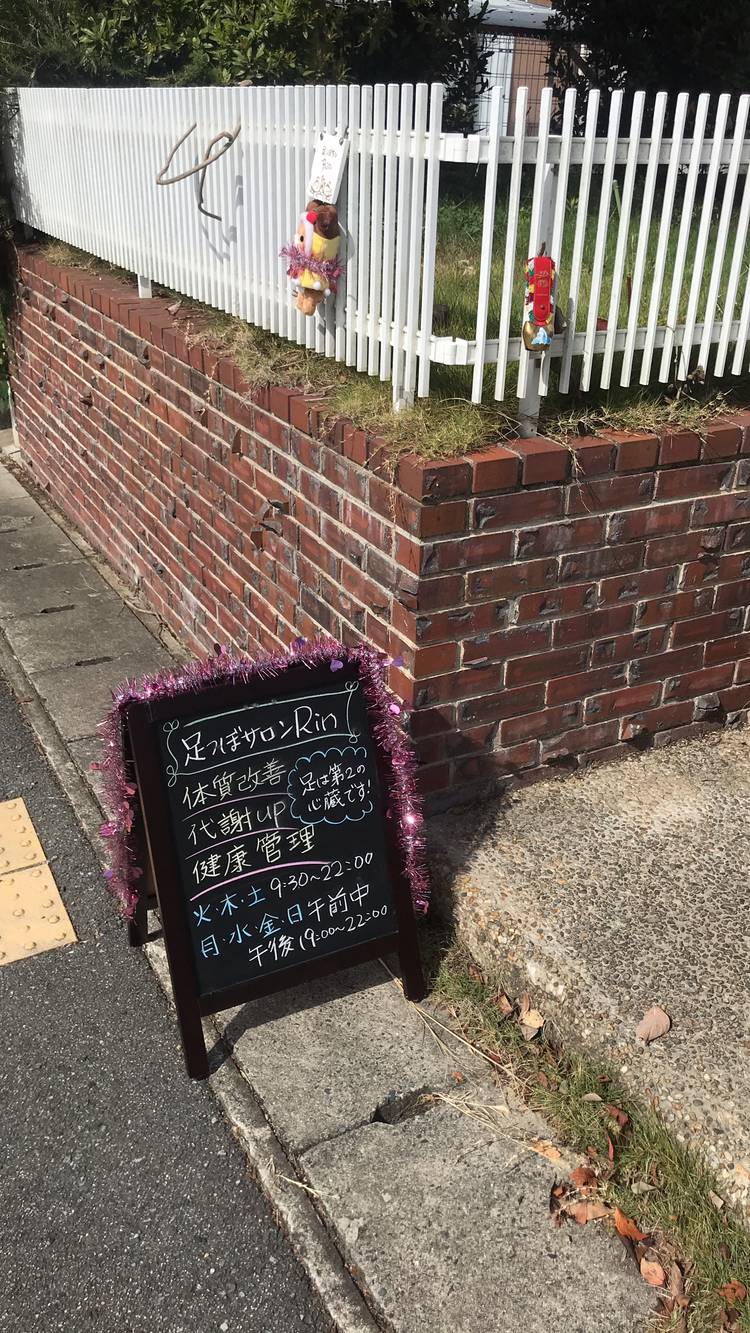 足つぼサロンRin
体質改善
代謝up
健康管理
足は第2の
心臓です!
火・木・土 9:30~22:00
月・水・金・日 午前中
午後19:00~22:00